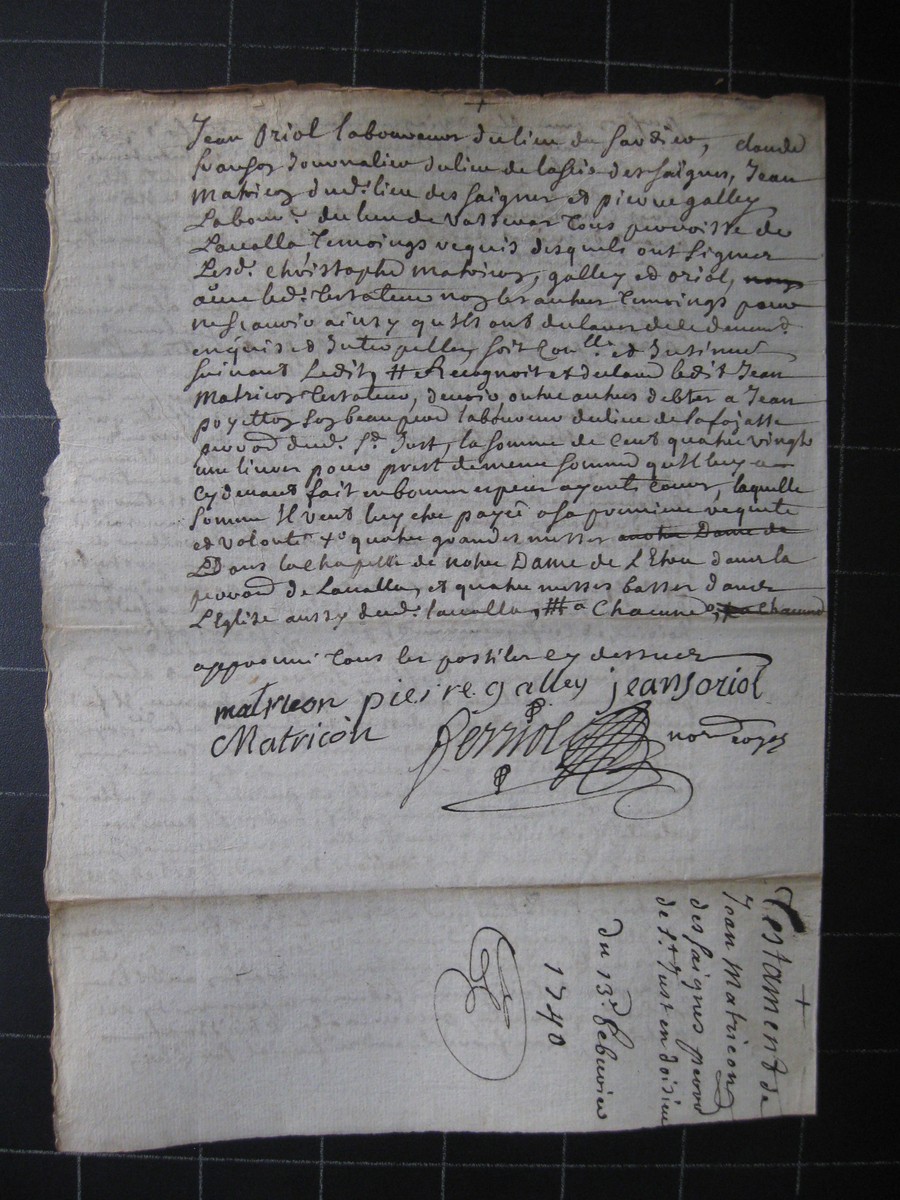 Jean Oriol laboureur du lieu de Sardier, claude
françon Journalier du lieu de la des saignes, Jean
Matricon dud. lieu des saignes et pierre galley
Labour. du lieu de tous paroisse de
Lavalla temoings requis desquels ont signer
Lesd. christophe matricon, galley et oriol,
avec led. testateur non les autres temoings pour
ne sçavoir ainsy quils ont declarer de le
enquis et Interpelley soit et Insinuer
suivant Ledit # Recognoit et declare ledit Jean
Matricon testateur, devoir outre autres debtes a Jean
poyetton son beau pere laboureur du lieu de la fayasse
dud. St. Just, la somme de Cent quatre vingts
une livres pour prest de meme somme quil luy a
cy devant fait en bonnes especes ayants cours, laquelle
somme Il veut luy etre payée a sa premiere requete
et volonté quatre grandes messes notre Dame de
Dans la chapelle de notre Dame de L'Etra dans la
de Lavalla, et quatre messes basses dans
L'Eglise aussy dud. lavalla, a Chacune,
approuvé tous les postiles cy dessus
matricon pierre galley jean oriol
Matricon Ferriol no.re
Testament de
Jean Matricon
des saignes
de St. Just en doisieu
du 13e. febvrier
1740